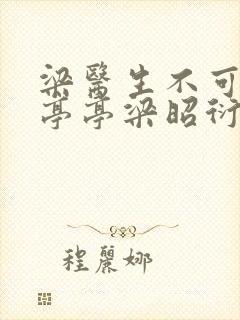 梁醫生不可
亭亭梁昭衍
程麗娜